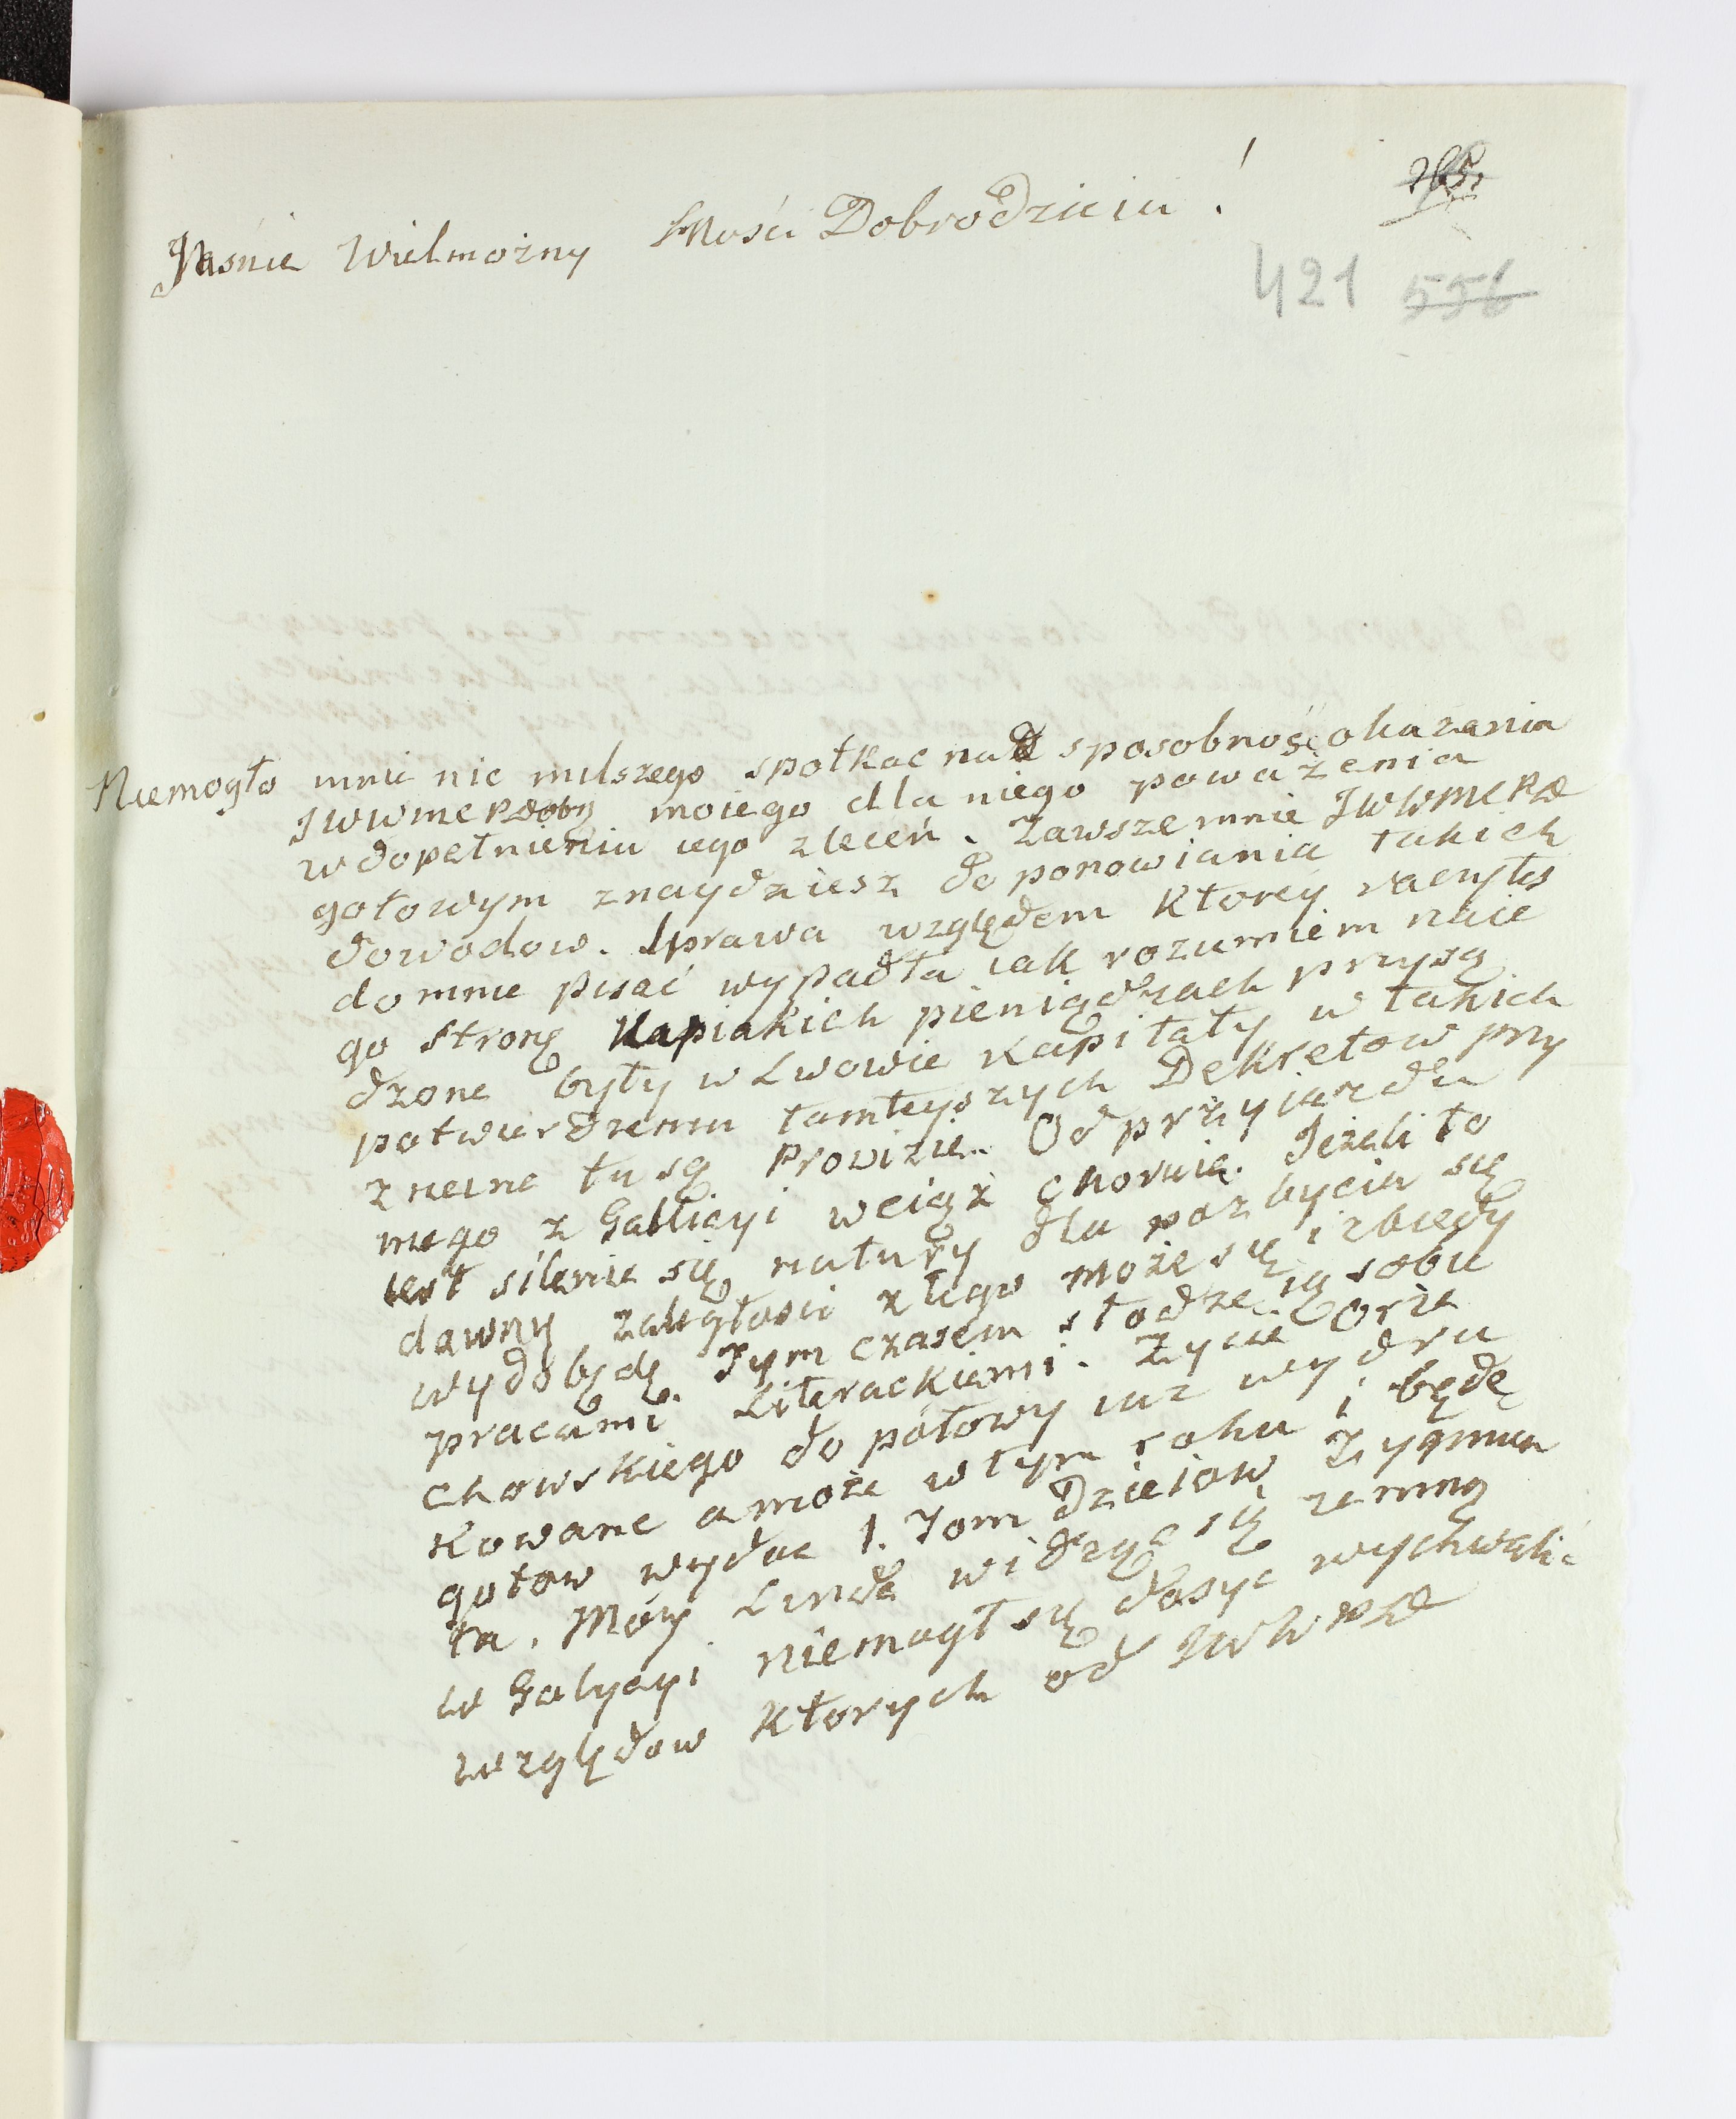 265.
Jaśnie Wielmożny Mości Dobrodzieiu!
421 556
Niemogło mnie nic milszego spotkac nad sposobność okazania
JWWMCPDobr moiego dla niego poważenia
w dopełnieniu iego zleceń. Zawsze mnie JWWMCPD
gotowym znaydziesz do ponowiania takich
dowodow. Sprawa względem ktorey raczyłeś
do mnie pisać wypadła iak rozumiem na ie
go stronę w iakich pieniądzach przysą
dzone były w Lwowie kapitały w takich
potwierdzeniu tamteyszych Dekretow przy
znane tu są Prowizie. Od przyiazdu
mego z Gallicyi wciąż choruię. Jeżeli to
iest silenie się natury dla pozbycia się
dawny zaległosci złego może się i z biedy
wydobędę. Tym czasem słodzę ią sobie
pracami Literackiemi. Zycie Gorze
chowskiego do połowy iuż wydru
kowane a może w tym roku i będę
gotow wydac 1. Tom Dzieiow Zygmun
ta. Moy Linde widząc się zemną
w Galycyi niemogł się dosyc wychwalic
względow ktorych od JWWPD